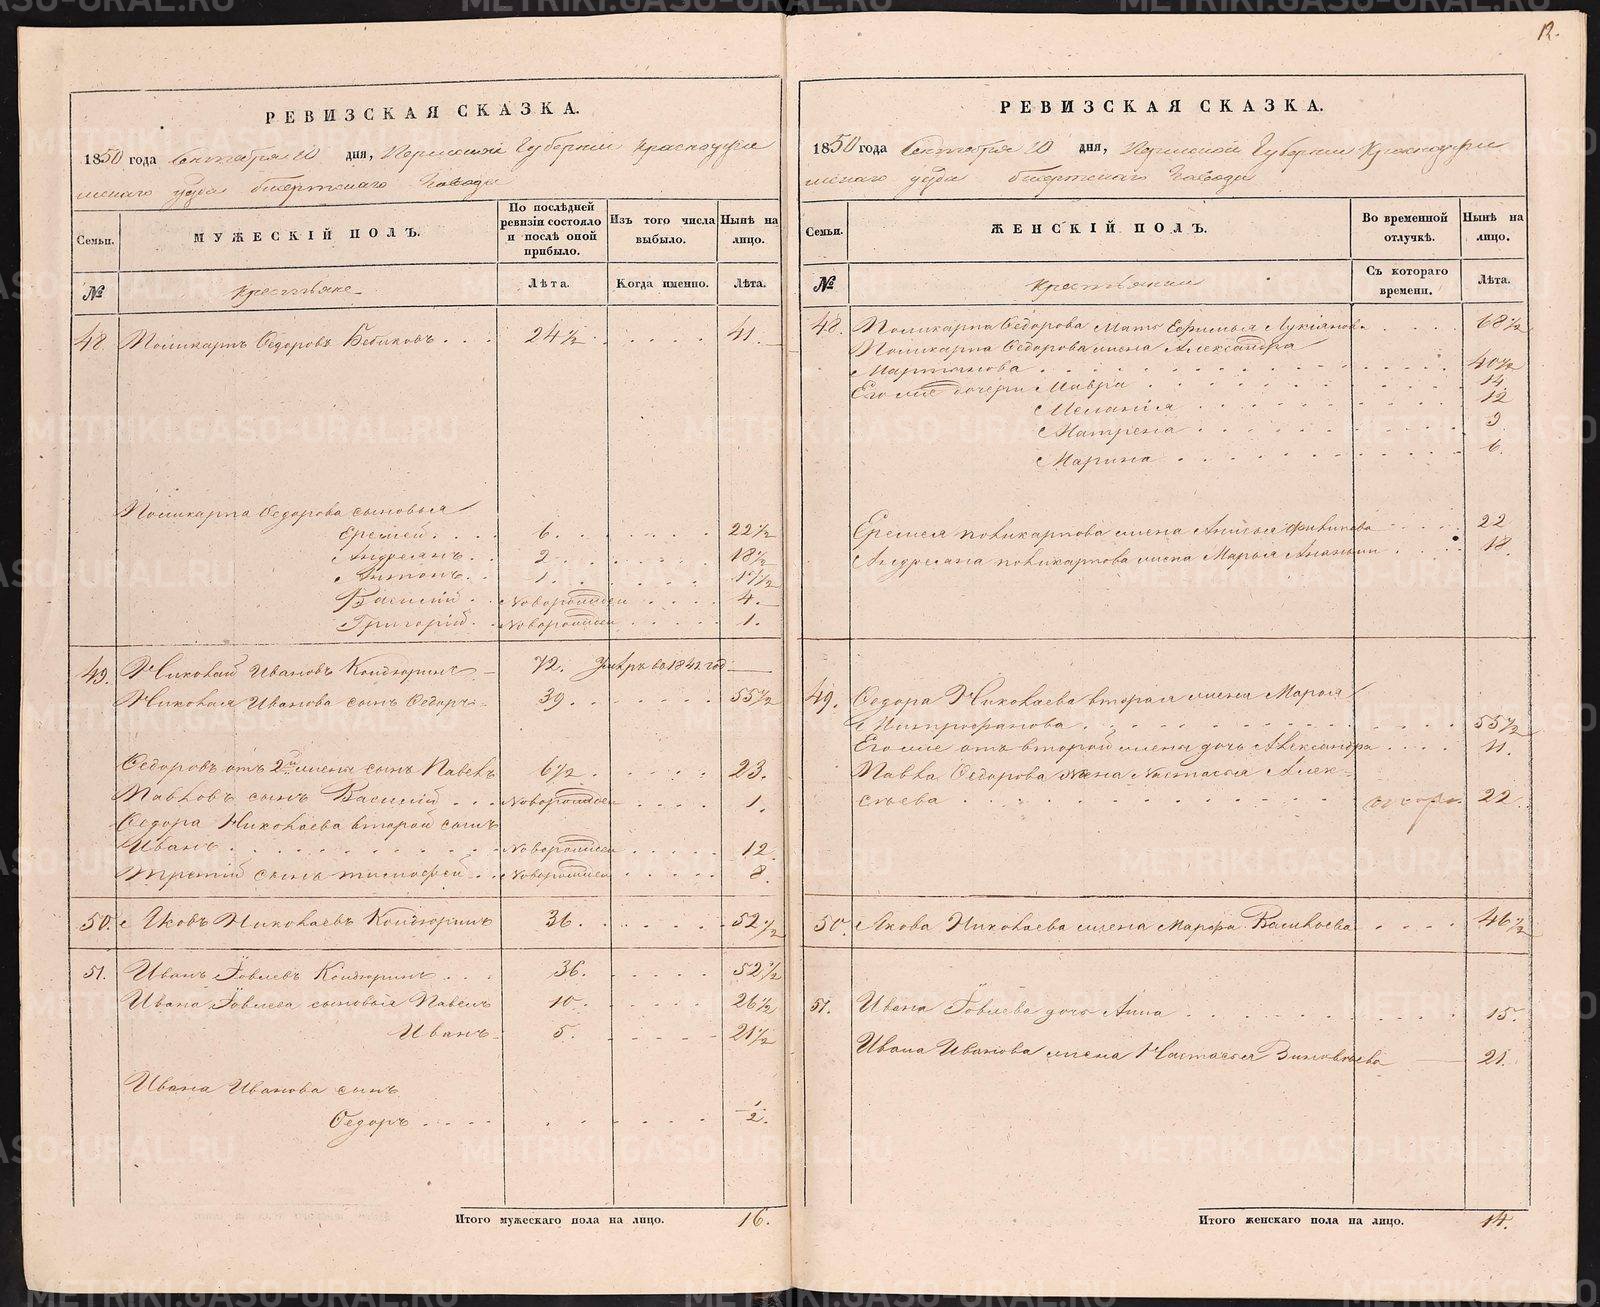 12.
РЕВИЗСКАЯ СКАЗКА.
1850 года Октября 10 дня, Пермской Губернии Красноуфи
мскаго уѣзда бисертскаго Завода
Семьи.
МУЖЕСКІЙ ПОЛЪ.
По послѣдней ревизіи состояло и послѣ оной прибыло.
Изъ того числа выбыло.
Нынѣ на лицо.
№
Крестьяне
Лѣта.
Когда именно.
Лѣта.
48. Поликарпъ Ѳедоровъ Бебиковъ . . . 24½ 41.
Поликарпа Ѳедорова сыновья
Еремей . . . 6. 22½
Андреянъ . . 2. 18½
Антонъ . . 1. 17½
Василий . . Новорожден 4.
Григорій . . Новорожден 1.
49. Николай Ивановъ Кондюринъ 72. Умѣръ въ 1842 год
Николая Иванова сынъ Ѳедоръ 39. 55½
Ѳедоровъ отъ 2й жены сынъ Павелъ 6½ 23.
Павловъ сынъ Василій . . . Новорожден 1.
Ѳедора Николаева второй сынъ
Иванъ . . . Новорожден 12.
Третій сынъ тимофей . . Новорожден 8.
50. Яковъ Николаевъ Кондюринъ 36. 52½
51. Иванъ Іовлевъ Кондюринъ . . . 36. 52½
Ивана Іовлева сыновья Павелъ 10. 26½
Иванъ 5. 21½
Ивана Иванова сынъ
Ѳедоръ . . . ½.
Итого мужескаго пола на лицо. 16.
РЕВИЗСКАЯ СКАЗКА.
1850 года Октября 10 дня, Пермской Губернии Красноуфи
мскаго уѣзда бисертскаго Завода
Семьи.
ЖЕНСКІЙ ПОЛЪ.
Во временной отлучкѣ.
Нынѣ на лицо.
№
Крестьянки
Съ котораго времени.
Лѣта.
48. Поликарпа Ѳедорова Мать Ефимья Лукіянова 68½
Поликарпа Ѳедорова жена Александра
Мартынова . . . 40½
Его же дочери Мавра . . . 14.
Меланія . . . 12
Матрена . . . 9.
Марина . . . 6.
Еремея поликарпова жена Анисья Филипова 22
Андреяна поликарпова жена Марья Ананьин . . . 18.
49. Ѳедора Николаева вторая жена Марья
Митрофанова . . . 55½
Его же отъ второй жены дочь Александра . . . 11.
Павла Ѳедорова жена Настасья Алек-
сѣева . . . 22
50. Якова Николаева жена Марфа Васильева . . . 46½
51. Ивана Іовлева дочь Анна . . . 15.
Ивана Иванова жена Настасья Зиновьева 21.
Итого женскаго пола на лицо. 14.
METRIKI.GASO-URAL.RU